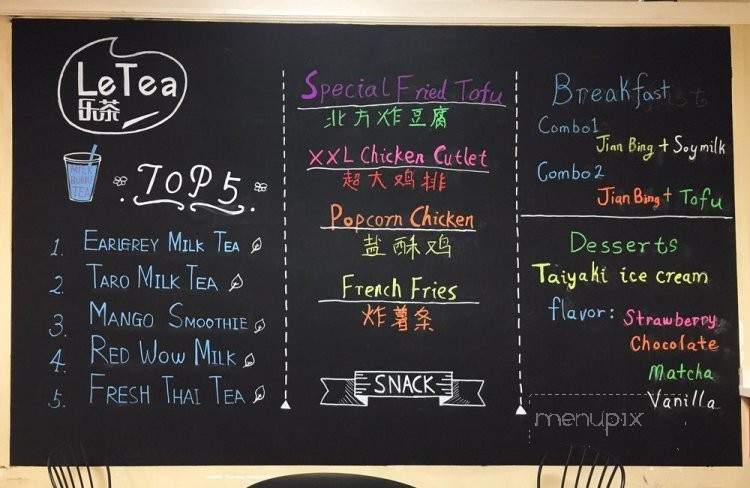 LeTea
乐茶
MILK
BUBBLE
TEA
TOP 5
1. EARLGREY MILK TEA
2. TARO MILK TEA
3. MANGO SMOOTHIE
4. RED WOW MILK
5. FRESH THAI TEA
Special Fried Tofu
北方炸豆腐
XXL Chicken Cutlet
超大鸡排
Popcorn Chicken
盐酥鸡
French Fries
炸薯条
SNACK
Breakfast
Combo1
Jian Bing + Soymilk
Combo2
Jian Bing + Tofu
Desserts
Taiyaki ice cream
flavor: Strawberry
Chocolate
Matcha
Vanilla
menupix